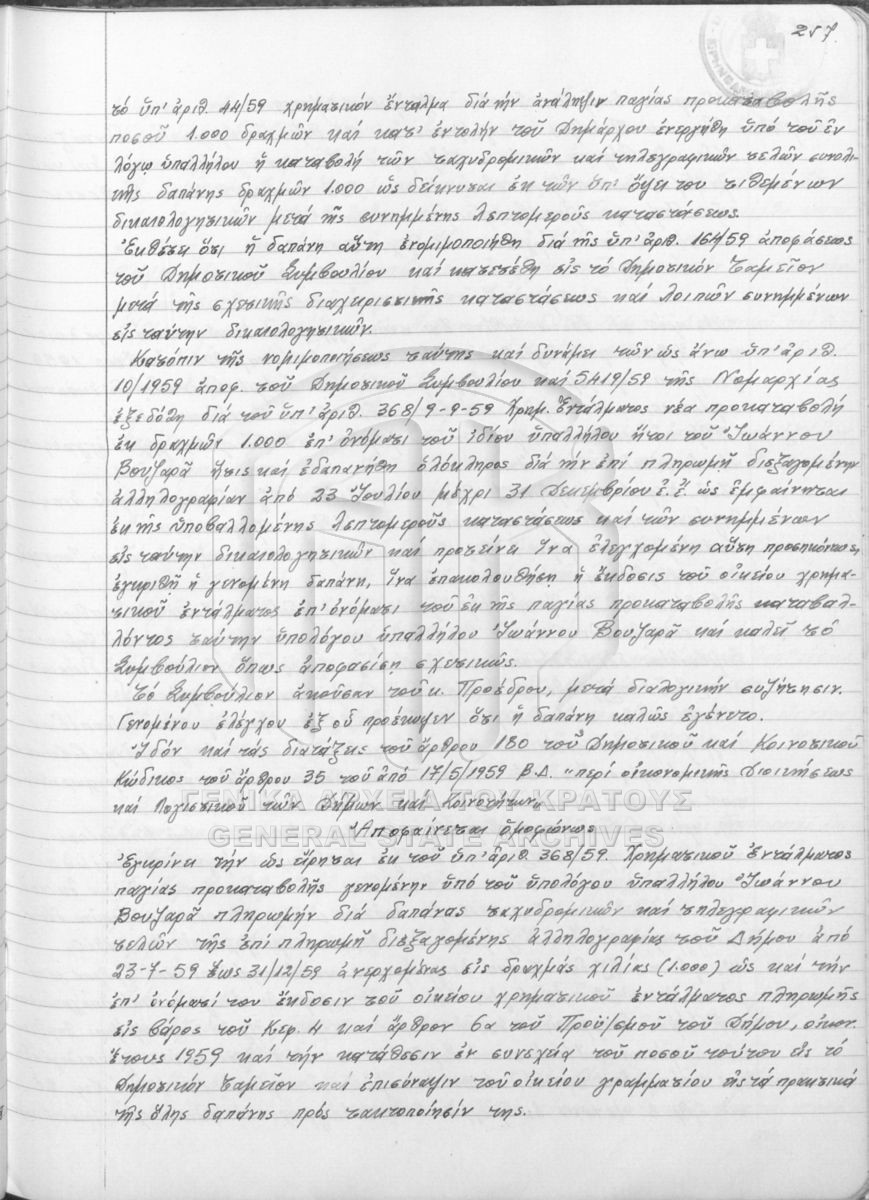 257
τό ὑπ' ἀριθ. 44/59 χρηματικόν ἔνταλμα διά τήν ἀνάληψιν παγίας προκαταβολῆς
ποσοῦ 1.000 δραχμῶν καί κατ' ἐντολήν τοῦ Δημάρχου ἐνεργήθη ὑπό τοῦ ἐν
λόγῳ ὑπαλλήλου ἡ καταβολή τῶν ταχυδρομικῶν καί τηλεγραφικῶν τελῶν συνολι-
κῆς δαπάνης δραχμῶν 1.000 ὡς δείκνυται ἐκ τῶν ὑπ' ὄψει του τιθεμένων
δικαιολογητικῶν μετά τῆς συνημμένης λεπτομεροῦς καταστάσεως.
Ἐκθέτει ὅτι ἡ δαπάνη αὕτη ἐνομιμοποιήθη διά τῆς ὑπ' ἀριθ. 164/59 ἀποφάσεως
τοῦ Δημοτικοῦ Συμβουλίου καί κατετέθη εἰς τό Δημοτικόν Ταμεῖον
μετά τῆς σχετικῆς διαχειριστικῆς καταστάσεως καί λοιπῶν συνημμένων
εἰς ταύτην δικαιολογητικῶν.
Κατόπιν τῆς νομιμοποιήσεως ταύτης καί δυνάμει τῶν ὡς ἄνω ὑπ' ἀριθ.
10/1959 ἀποφ. τοῦ Δημοτικοῦ Συμβουλίου καί 5419/59 τῆς Νομαρχίας
ἐξεδόθη διά τοῦ ὑπ' ἀριθ. 368/9-9-59 Χρημ. Ἐντάλματος νέα προκαταβολή
ἐκ δραχμῶν 1.000 ἐπ' ὀνόματι τοῦ ἰδίου ὑπαλλήλου ἤτοι τοῦ Ἰωάννου
Βουζαρᾶ ἥτις καί ἐδαπανήθη ὁλόκληρος διά τήν ἐπί πληρωμῇ διεξαγομένην
ἀλληλογραφίαν ἀπό 23 Ἰουλίου μέχρι 31 Δεκεμβρίου ἐ.ἔ. ὡς ἐμφαίνηται
ἐκ τῆς ὑποβαλλομένης λεπτομεροῦς καταστάσεως καί τῶν συνημμένων
εἰς ταύτην δικαιολογητικῶν καί προτείνει ἵνα ἐλεγχομένη αὕτη προσηκόντως,
ἐγκριθῇ ἡ γενομένη δαπάνη, ἵνα ἐπακολουθήσῃ ἡ ἔκδοσις τοῦ οἰκείου χρημα-
τικοῦ ἐντάλματος ἐπ' ὀνόματι τοῦ ἐκ τῆς παγίας προκαταβολῆς καταβαλ-
λόντος ταύτην ὑπολόγου ὑπαλλήλου Ἰωάννου Βουζαρᾶ καί καλεῖ τό
Συμβούλιον ὅπως ἀποφασίσῃ σχετικῶς.
Τό Συμβούλιον ἀκοῦσαν τοῦ κ. Προέδρου, μετά διαλογικήν συζήτησιν.
Γενομένου ἐλέγχου ἐξ οὗ προέκυψεν ὅτι ἡ δαπάνη καλῶς ἐγένετο.
Ἰδόν καί τάς διατάξεις τοῦ ἄρθρου 180 τοῦ Δημοτικοῦ καί Κοινοτικοῦ
Κώδικος τοῦ ἄρθρου 35 τοῦ ἀπό 17/5/1959 Β.Δ. "περί οἰκονομικῆς Διοικήσεως
καί Λογιστικοῦ τῶν Δήμων καί Κοινοτήτων"
ΓΕΝΙΚΑ ΑΡΧΕΙΑ ΤΟΥ ΚΡΑΤΟΥΣ
Ἀποφαίνεται ὁμοφώνως
GENERAL STATE ARCHIVES
Ἐγκρίνει τήν ὡς εἴρηται ἐκ τοῦ ὑπ' ἀριθ. 368/59. Χρηματικοῦ Ἐντάλματος
παγίας προκαταβολῆς γενομένην ὑπό τοῦ ὑπολόγου ὑπαλλήλου Ἰωάννου
Βουζαρᾶ πληρωμήν διά δαπάνας ταχυδρομικῶν καί τηλεγραφικῶν
τελῶν τῆς ἐπί πληρωμῇ διεξαγομένης ἀλληλογραφίας τοῦ Δήμου ἀπό
23-7-59 ἕως 31/12/59 ἀνερχομένας εἰς δραχμάς χιλίας (1.000) ὡς καί τήν
ἐπ' ὀνόματί του ἔκδοσιν τοῦ οἰκείου χρηματικοῦ ἐντάλματος πληρωμῆς
εἰς βάρος τοῦ Κεφ. 4 καί ἄρθρον 6α τοῦ Προϋ/σμοῦ τοῦ Δήμου, οἰκον.
ἔτους 1959 καί τήν κατάθεσιν ἐν συνεχείᾳ τοῦ ποσοῦ τούτου εἰς τό
Δημοτικόν Ταμεῖον καί ἐπισύναψιν τοῦ οἰκείου γραμματίου εἰς τά πρακτικά
τῆς ὅλης δαπάνης πρός τακτοποίησίν της.